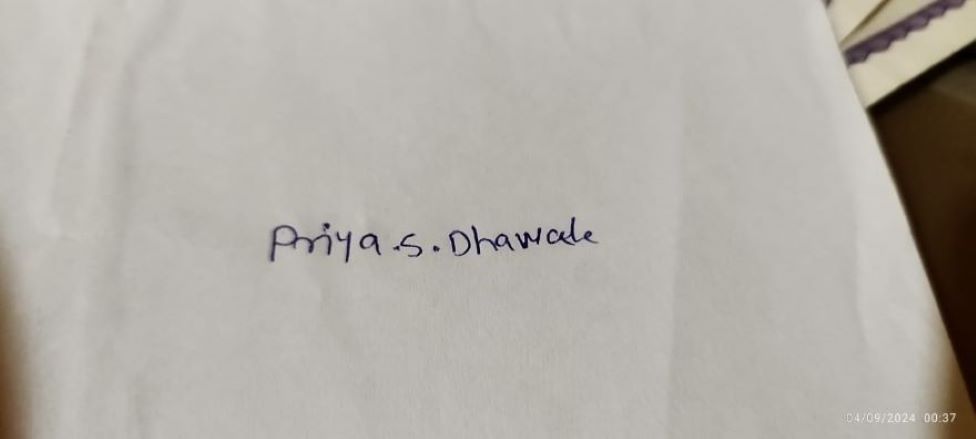 Priya.S.Dhawale
04/09/2024 00:37